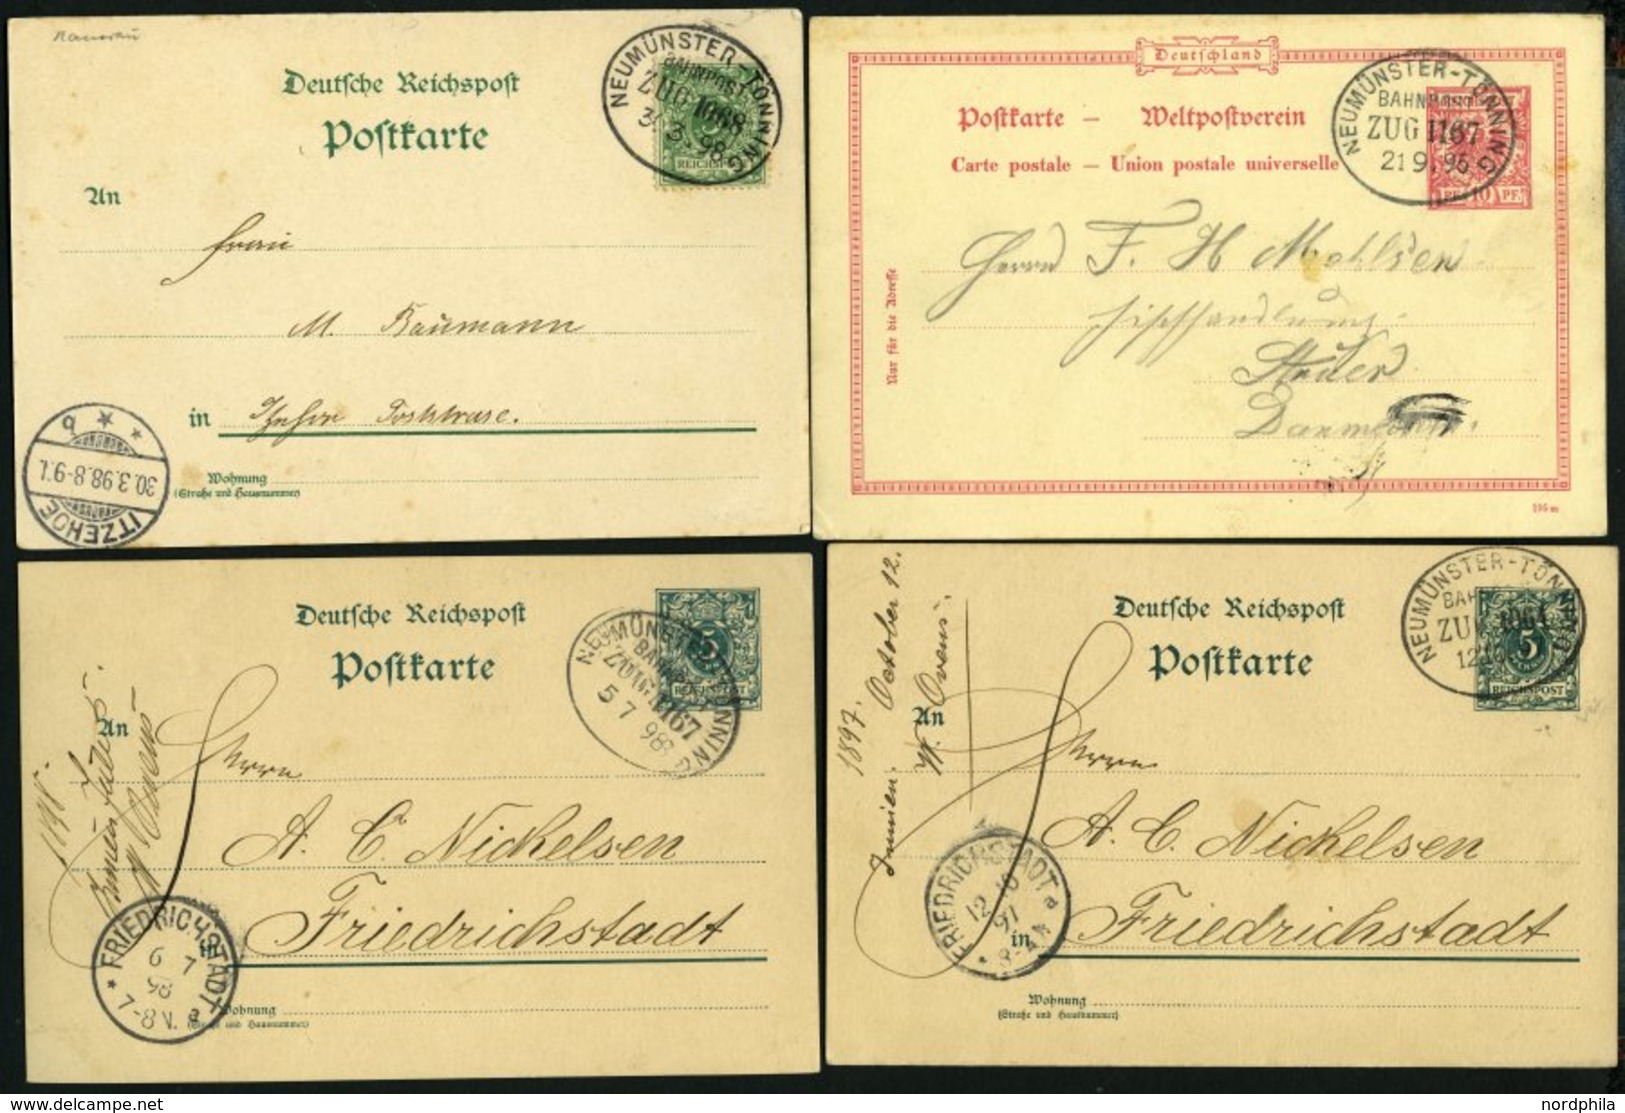 Deutsche Reichspost
Postkarte
NEUMÜNSTER-TÖNNING
BAHNPOST
ZUG 1068
3. 3. 98
5
REICHSPOST
An
Frau
M. Baumann
in
Wohnung
(Straße und Hausnummer)
ITZEHOE
30.3.98.8-9.V.
Deutschland
Postkarte — Weltpostverein
Carte postale — Union postale universelle
NEUMÜNSTER-TÖNNING
BAHNPOST
ZUG 1167
21 9. 96
10 PF.
Herrn F. H. Mohlsen
Fischhandlung
Struer
Danmark.
Nur für die Adresse
Deutsche Reichspost
Postkarte
NEUMÜNSTER-TÖNNING
BAHNPOST
ZUG 1167
5 7 98
5
REICHSPOST
1898
An
Herrn
A. C. Nickelsen
in Friedrichstadt
Wohnung
(Straße und Hausnummer)
FRIEDRICHSTADT
6 7
98
7-8 V.
Deutsche Reichspost
Postkarte
NEUMÜNSTER-TÖNNING
BAHNPOST
ZUG 1061
12 10
5
REICHSPOST
1897. October 12.
W. Ovens.
An
Herrn
A. C. Nickelsen
in Friedrichstadt
Wohnung
(Straße und Hausnummer)
FRIEDRICHSTADT
12 10
97
nordphila.com
nordphila